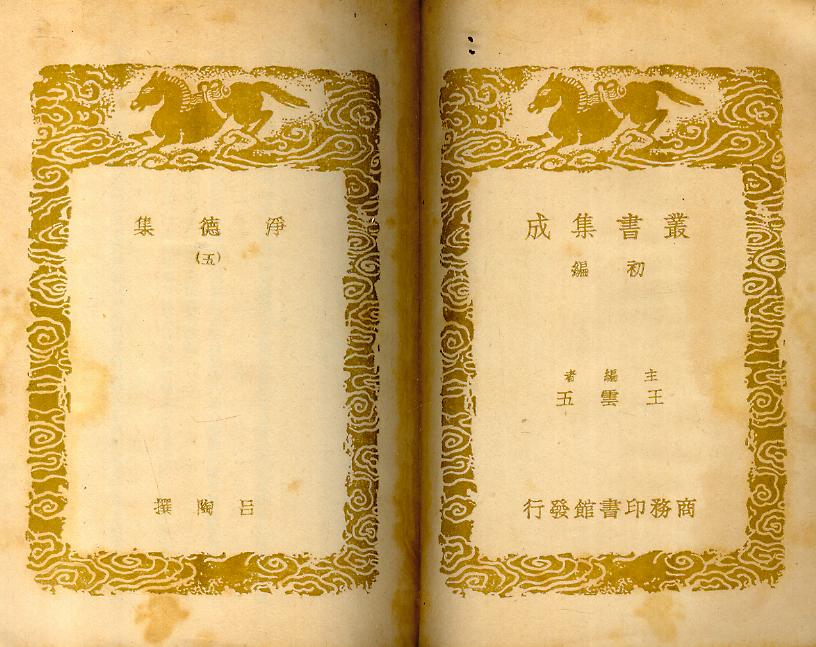 叢書集成
初編
主編者
王雲五
商務印書館發行
淨德集
(五)
呂陶撰